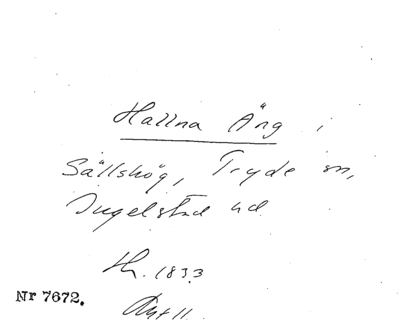 Hallna Äng i
Sällshög, Tryde sn,
Ingelstad hd.
Sk. 1833
Nr 7672.